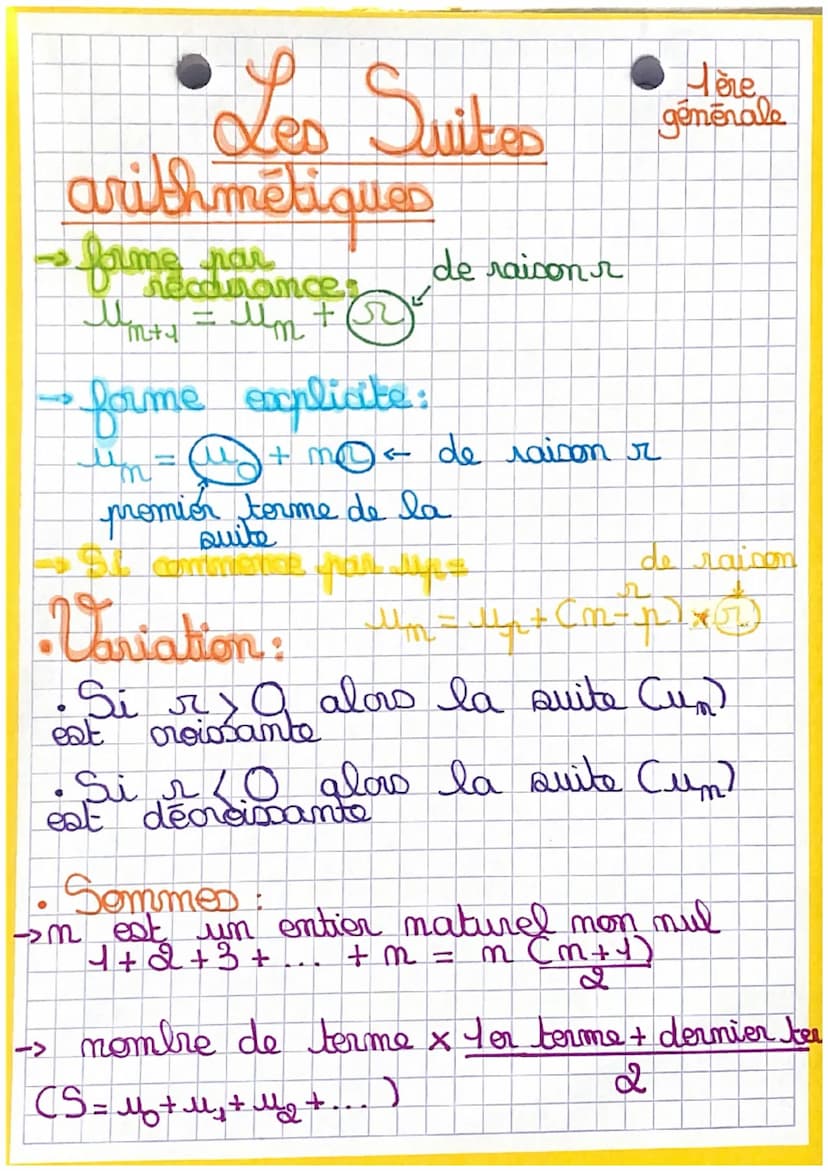 Les Suites
1ère
générale
arithmétiques
→ forme par
récurrence:
de raison r
u_{n+1} = u_n + r
→ forme explicite:
u_n = u_0 + nr ← de raison r
premier terme de la
suite
→ Si commence par up=
de raison
r
u_n = u_p + (n-p) × r
• Variation:
• Si r > 0 alors la suite (u_n)
est croissante
• Si r < 0 alors la suite (u_n)
est décroissante
• Sommes :
→ n est un entier naturel non nul
1+2+3+... + n = n (n+1)/2
→ nombre de terme × 1er terme + dernier ter
2
(S = u_0 + u_1 + u_2 + ...)